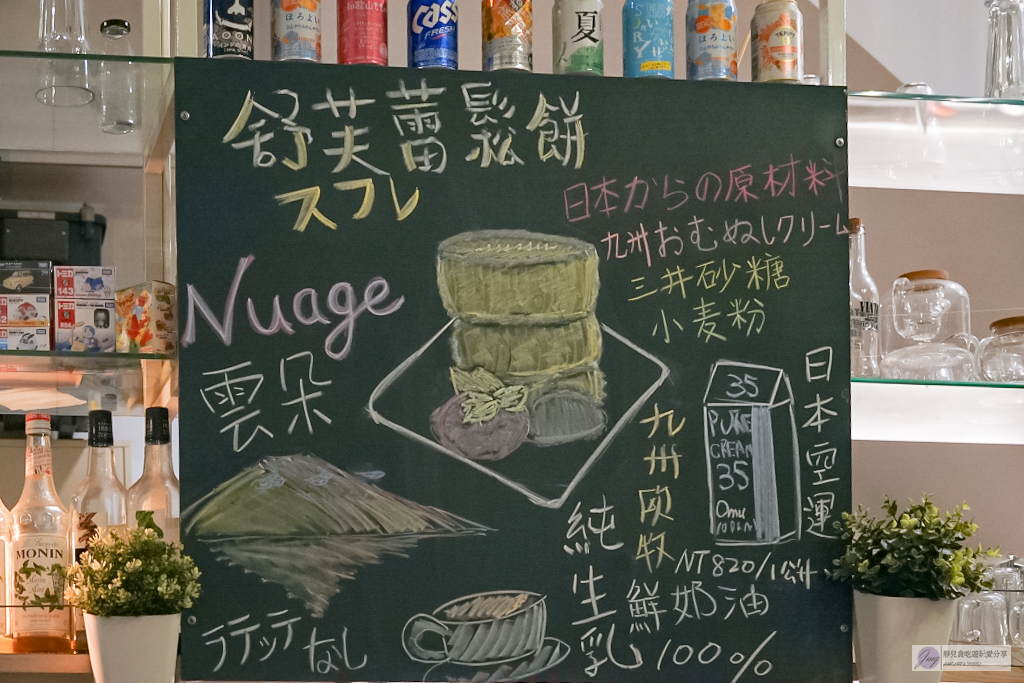 夏
ほろよい
CASS
FRESH
ほろよい
舒芙蕾鬆餅
スフレ
日本からの原材料
九州おむぬしクリーム
三井砂糖
小麦粉
Nuage
雲朵
35
PURE
CREAM
35
Omu
日本空運
九州欧牧
純生乳
NT820/1公升、
鮮奶油
100%
ラテッテ
なし
トミカ
143
MONIN
靜兒貪吃遊玩愛分享